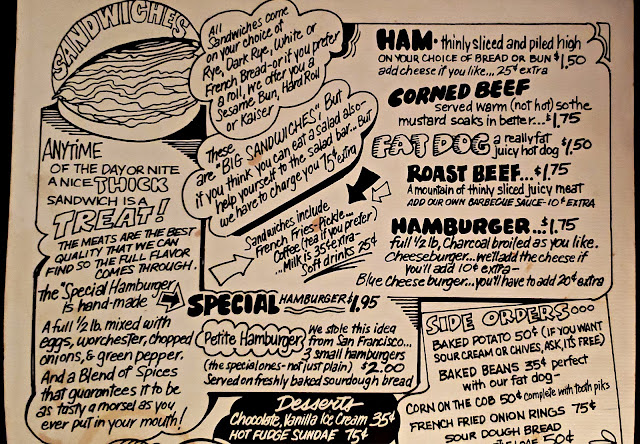 SANDWICHES
All
Sandwiches come
on your choice of
Rye, Dark Rye, White or
French Bread-or if you prefer
a roll, we offer you a
Sesame Bun, Hard Roll
or Kaiser
These
are "BIG SANDWICHES", But
if you think you can eat a salad also-
help yourself to the salad bar... But
we have to charge you 75¢ extra
Sandwiches include
French Fries-Pickle...
Coffee (tea if you prefer)
...Milk is 35¢ extra-
Soft drinks 25¢
ANYTIME
OF THE DAY OR NITE
A NICE THICK
SANDWICH IS A
TREAT!
THE MEATS ARE THE BEST
QUALITY THAT WE CAN
FIND SO THE FULL FLAVOR
COMES THROUGH.
The "Special Hamburger
is hand-made"
A full ½ lb. mixed with
eggs, worchester, chopped
onions, & green pepper.
And a Blend of Spices
that guarantees it to be
as tasty a morsel as you
ever put in your mouth!
HAM • thinly sliced and piled high
ON YOUR CHOICE OF BREAD OR BUN $1.50
add cheese if you like... 25¢ extra
CORNED BEEF
served warm (not hot) so the
mustard soaks in better...$1.75
FAT DOG a really fat
juicy hot dog $1.50
ROAST BEEF...$1.75
A mountain of thinly sliced juicy meat
ADD OUR OWN BARBECUE SAUCE- 10¢ EXTRA
HAMBURGER...$1.75
full ½ lb, Charcoal broiled as you like.
Cheeseburger...we'll add the cheese if
you'll add 10¢ extra-
Blue Cheese burger...you'll have to add 20¢ extra
SPECIAL HAMBURGER $1.95
Petite Hamburger We stole this idea
from San Francisco...
3 small hamburgers
(the special ones - not just plain) $2.00
Served on freshly baked sourdough bread
Desserts
Chocolate, Vanilla Ice Cream 35¢
HOT FUDGE SUNDAE 75¢
SIDE ORDERS
BAKED POTATO 50¢ (IF YOU WANT
SOUR CREAM OR CHIVES, ASK, ITS FREE)
BAKED BEANS 35¢ perfect
with our fat dog-
CORN ON THE COB 50¢ complete with tooth piks
FRENCH FRIED ONION RINGS 75¢
SOUR DOUGH BREAD
50¢